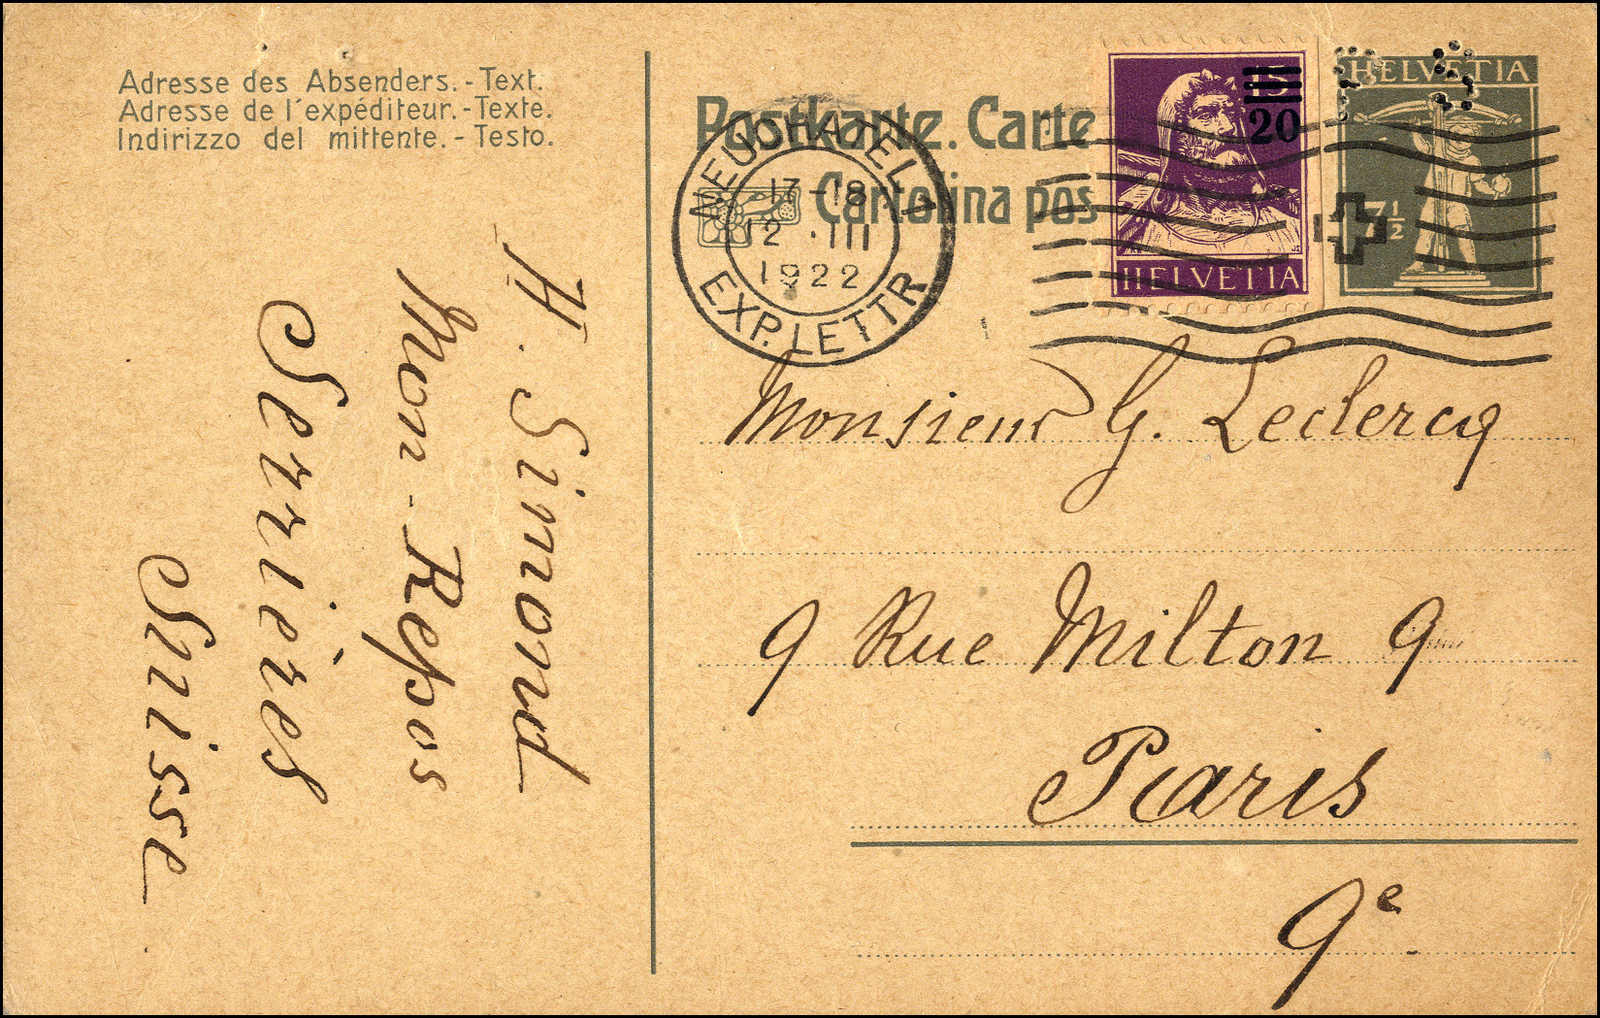 Adresse des Absenders.-Text.
Adresse de l'expéditeur.-Texte.
Indirizzo del mittente.-Testo.
Postkarte. Carte
Cartolina pos
NEUCHATEL 1
17-18
12.III
1922
EXP. LETTR
15
20
HELVETIA
HELVETIA
7½
H. Simond
Mon-Repos
Serrières
Suisse
Monsieur G. Leclercq
9 Rue Milton 9
Paris
9e